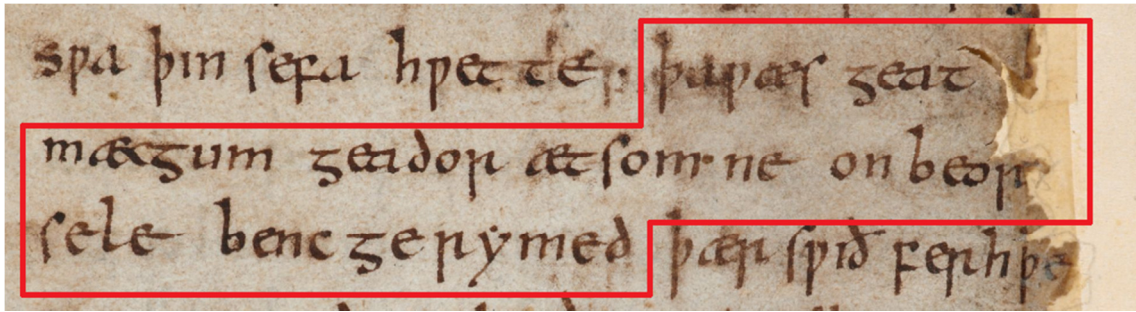 sƿa þin sefa hƿet te. þaƿæs geat
mæcgum geador ætsom ne on beor
sele benc gerymed þær sƿið ferhþe